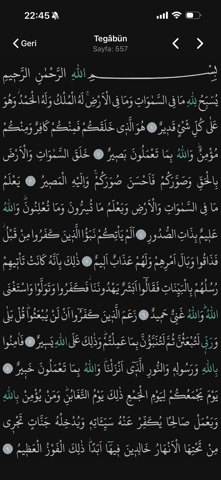 22:45
Tegâbün
Geri
Sayfa: 557
بِسْمِ اللّٰهِ الرَّحْمٰنِ الرَّحِيمِ
يُسَبِّحُ لِلّٰهِ مَا فِي السَّمٰوَاتِ وَمَا فِي الْاَرْضِۚ لَهُ الْمُلْكُ وَلَهُ الْحَمْدُۘ وَهُوَ
عَلٰى كُلِّ شَيْءٍ قَدِيرٌ هُوَ الَّذِي خَلَقَكُمْ فَمِنْكُمْ كَافِرٌ وَمِنْكُمْ
مُؤْمِنٌۜ وَاللّٰهُ بِمَا تَعْمَلُونَ بَصِيرٌ خَلَقَ السَّمٰوَاتِ وَالْاَرْضَ
بِالْحَقِّ وَصَوَّرَكُمْ فَاَحْسَنَ صُوَرَكُمْۚ وَاِلَيْهِ الْمَصِيرُ يَعْلَمُ
مَا فِي السَّمٰوَاتِ وَالْاَرْضِ وَيَعْلَمُ مَا تُسِرُّونَ وَمَا تُعْلِنُونَۜ وَاللّٰهُ
عَلِيمٌ بِذَاتِ الصُّدُورِ اَلَمْ يَأْتِكُمْ نَبَؤُا الَّذِينَ كَفَرُوا مِنْ قَبْلُۘ
فَذَاقُوا وَبَالَ اَمْرِهِمْ وَلَهُمْ عَذَابٌ اَلِيمٌ ذٰلِكَ بِاَنَّهُ كَانَتْ تَأْتِيهِمْ
رُسُلُهُمْ بِالْبَيِّنَاتِ فَقَالُوا اَبَشَرٌ يَهْدُونَنَاۘ فَكَفَرُوا وَتَوَلَّوْا وَاسْتَغْنَى
اللّٰهُۜ وَاللّٰهُ غَنِيٌّ حَمِيدٌ زَعَمَ الَّذِينَ كَفَرُوا اَنْ لَنْ يُبْعَثُواۜ قُلْ بَلٰى
وَرَبِّي لَتُبْعَثُنَّ ثُمَّ لَتُنَبَّؤُنَّ بِمَا عَمِلْتُمْۜ وَذٰلِكَ عَلَى اللّٰهِ يَسِيرٌ فَاٰمِنُوا
بِاللّٰهِ وَرَسُولِهِ وَالنُّورِ الَّذِي اَنْزَلْنَاۜ وَاللّٰهُ بِمَا تَعْمَلُونَ خَبِيرٌ
يَوْمَ يَجْمَعُكُمْ لِيَوْمِ الْجَمْعِ ذٰلِكَ يَوْمُ التَّغَابُنِۜ وَمَنْ يُؤْمِنْ بِاللّٰهِ
وَيَعْمَلْ صَالِحًا يُكَفِّرْ عَنْهُ سَيِّـَٔاتِهِ وَيُدْخِلْهُ جَنَّاتٍ تَجْرِي
مِنْ تَحْتِهَا الْاَنْهَارُ خَالِدِينَ فِيهَا اَبَدًاۜ ذٰلِكَ الْفَوْزُ الْعَظِيمُ